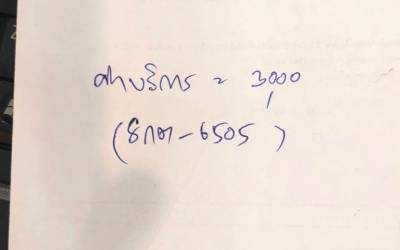 ค่าบริการ = 3000
(8กต-6505)